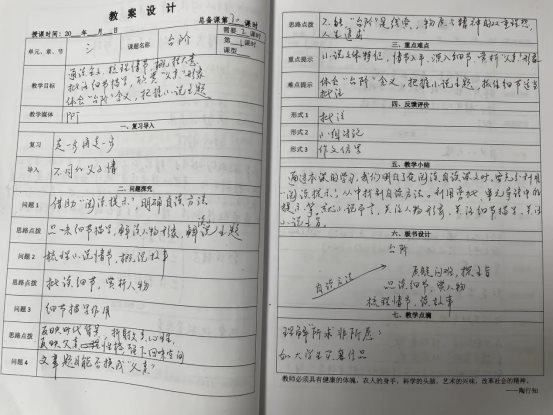 教案设计
总备课第 课时
授课时间:20 年 月 日
需要2课时
单元、章、节 三
课题名称 台阶
第 课时
课型
教学目标
通读全文,梳理情节,概括大意
批注细节描写,欣赏“父亲”形象
体会“台阶”含义,把握小说主题
教学媒体 PPT
一、复习导入
复习 走一步再走一步
导入 不同的父子情
二、问题探究
问题1 借助“阅读提示”,明确自读方法
思路点拨 品味细节描写,解读人物形象,解说主题
问题2 梳理小说情节,概说故事
思路点拨 批读细节,赏析人物
问题3 细节描写作用
思路点拨
反映时代背景,折射父亲心理,
反映父亲性格 留下回味空间
问题4 文章题目能否换成“父亲”
思路点拨
不能,“台阶”是线索,物质与精神的双重
人生追求
三、重点难点
重点提示 小说文体特征,情节入手,深入细节,赏析“父亲”形象
难点提示
体会“台阶”含义,把握小说主题,抓住细节适当
批注
四、反馈评价
形式1 批注
形式2 小组讨论
形式3 作文
五、教学小结
通过本课的学习,我们明白了在阅读自读课文时,首先要利用
“阅读提示”,从中找到自读方法。利用旁批,单元导语中的
提示等,关注小说情节,关注人物形象,关注细节描写,关注
小说主旨。
六、板书设计
台阶
自读方法
质疑问难,探主旨
品读细节,赏人物
梳理情节,说故事
七、教学点滴
理解“所求非所愿”
如大学生
教师必须具有健康的体魄,农人的身手,科学的头脑,艺术的兴味,改革社会的精神。
——陶行知